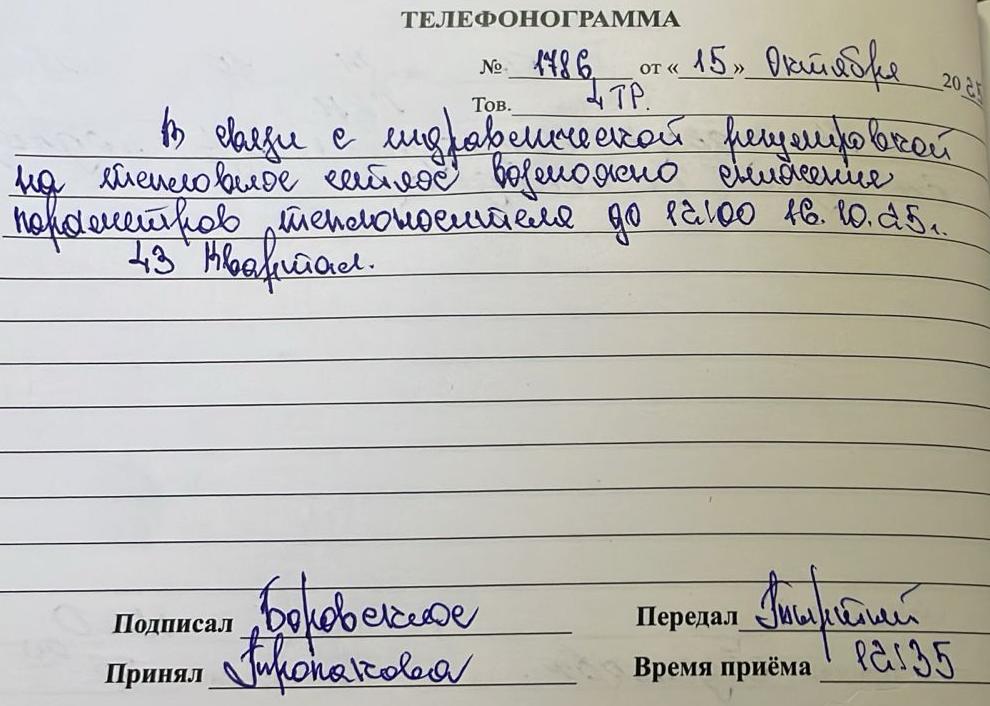 ТЕЛЕФОНОГРАММА
№ 1786 от «15» Октября 2025
Тов. 4 ТР.
В связи с гидравлической регулировкой
на тепловых сетях возможно снижение
параметров теплоносителя до 12:00 16.10.25г.
43 Квартал.
Подписал Боровских Передал
Принял Время приёма 12:35